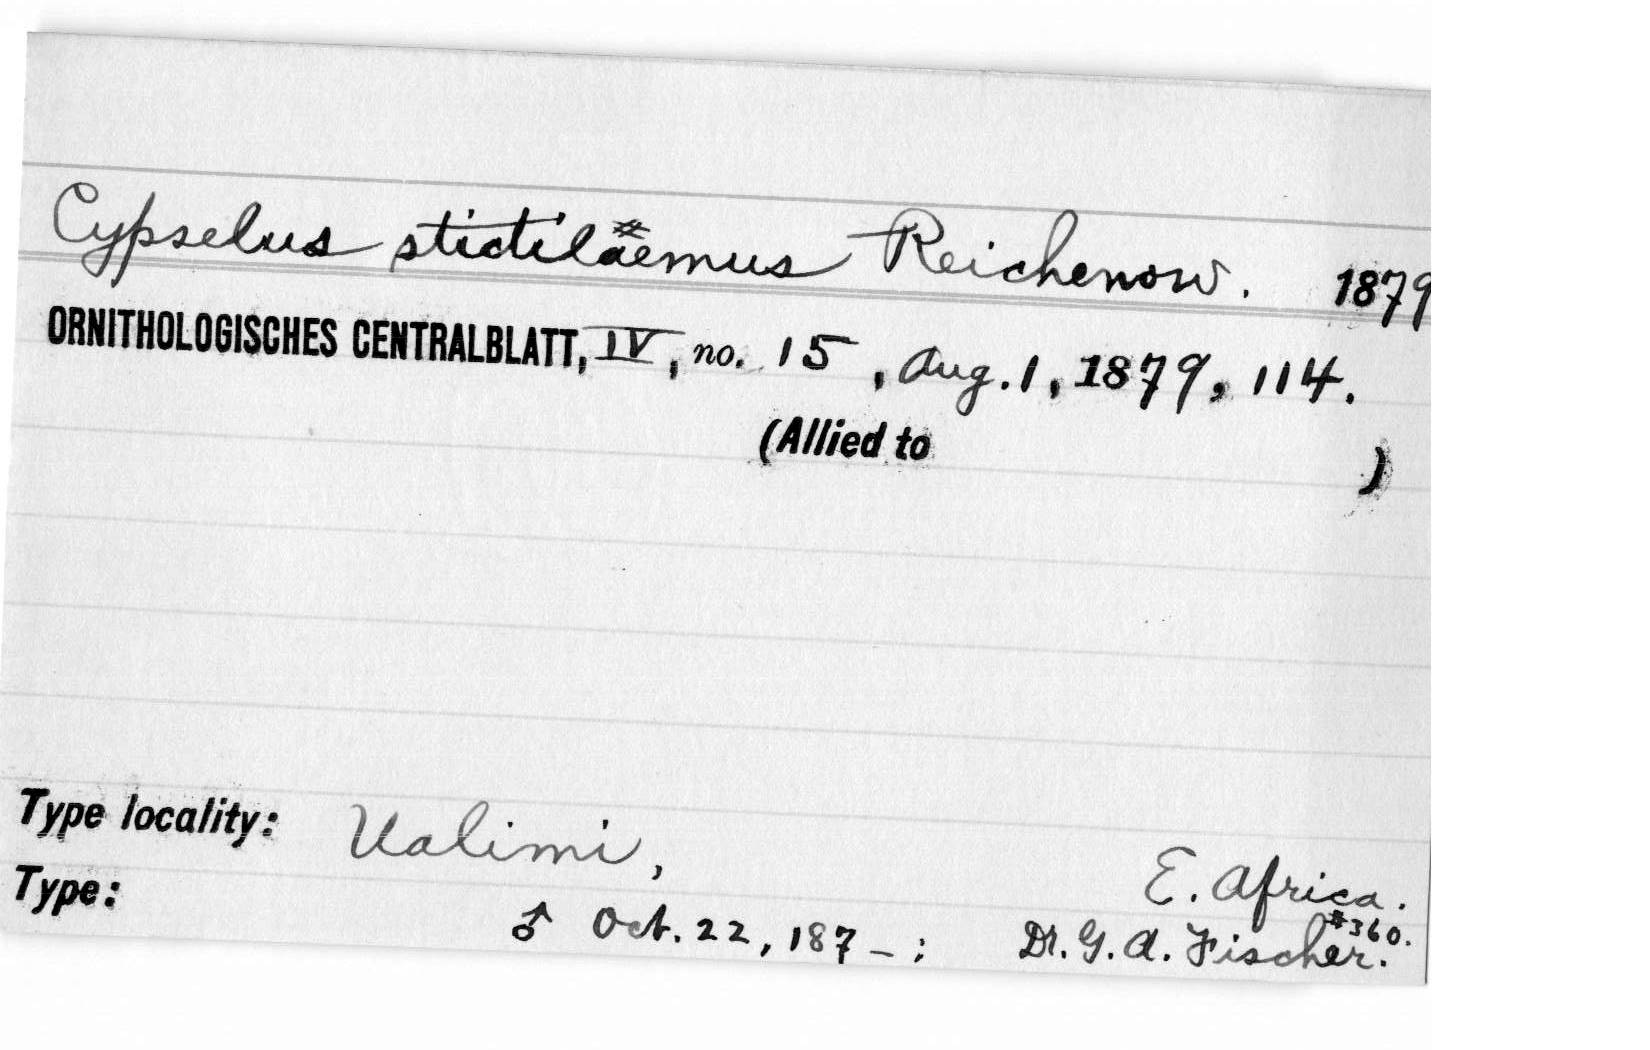 Cypselus stictilæmus Reichenow. 1879
ORNITHOLOGISCHES CENTRALBLATT, IV, no. 15, Aug. 1, 1879, 114.
(Allied to )
Type locality: Ualimi, E. Africa.
#360.
Type: ♂ Oct. 22, 187_; Dr. G. A. Fischer.